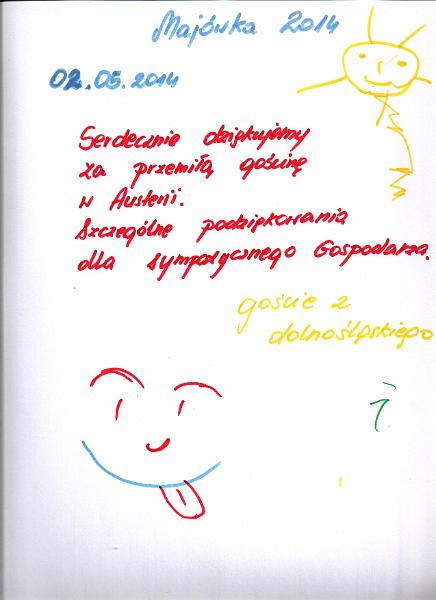 Majówka 2014
02.05.2014
Serdecznie dziękujemy
za przemiłą gościnę
w Austerii.
Szczególne podziękowania
dla sympatycznego Gospodarza.
goście z
dolnośląskiego